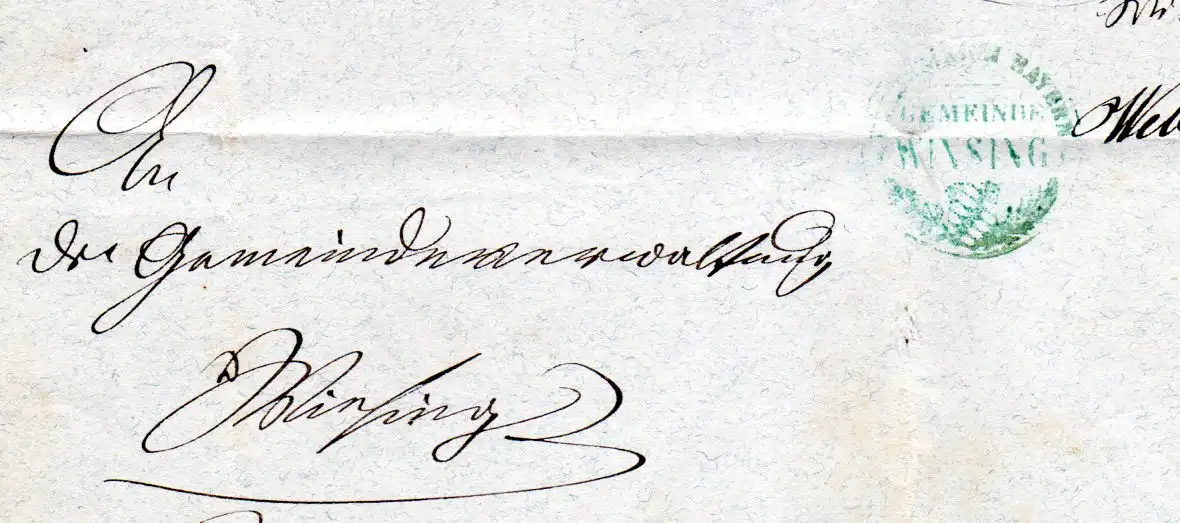 An
der Gemeindeverwaltung
Winsing
BAYERN
GEMEINDE
WINSING